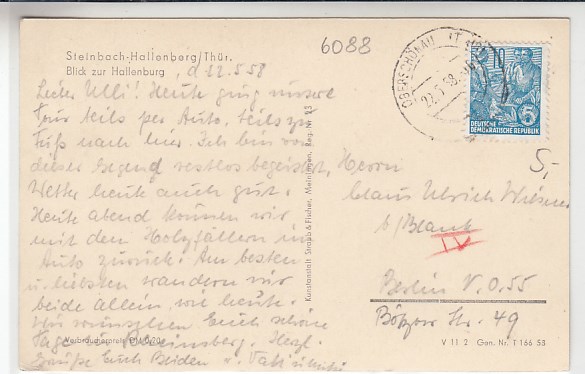 Steinbach-Hallenberg/Thür.
Blick zur Hallenburg
6088
d 22.5.58
Lieber Ulli! Heute ging unsere
Tour teils per Auto, teils zu
Fuß nach hier. Ich bin von
dieser Gegend restlos begeistert,
Wetter heute auch gut.
Heute abend kommen wir
mit den Holzfällern im
Auto zurück. Am besten
u. liebsten wandern wir
beide allein, wie heute.
Wir wünschen Euch schöne
Tage in Rheinsberg. Herzl.
Grüße Euch Beiden
Verbraucherpreis DM 0,20
Kunstanstalt Straub & Fischer, Meiningen, Reg. Nr.
OBERSCHÖNAU
DEUTSCHE
DEMOKRATISCHE REPUBLIK
5
5,-
Herrn
Claus Ulrich
b/Blank
IV
Berlin N.O.55
Bötzow Str. 49
V 11 2 Gen. Nr. T 166 53